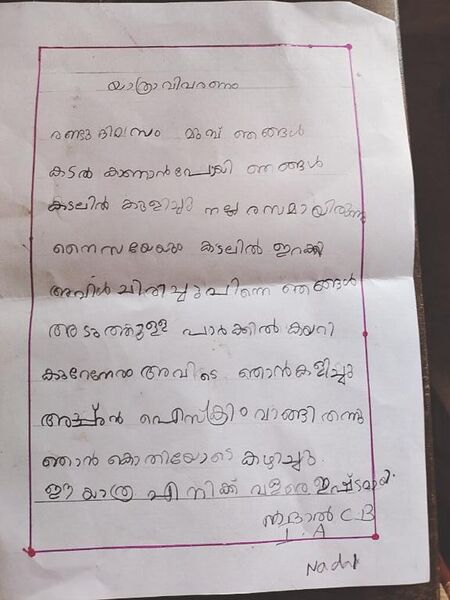 യാത്രാവിവരണം
രണ്ടു ദിവസം മുമ്പ് ഞങ്ങൾ
കടൽ കാണാൻ പോയി ഞങ്ങൾ
കടലിൽ കുളിച്ചു നല്ല രസമായിരുന്നു
നൈസയേയും കടലിൽ ഇറക്കി
അവൾ ചിരിച്ചു പിന്നെ ഞങ്ങൾ
അടുത്തുള്ള പാർക്കിൽ കയറി
കുറേനേരം അവിടെ ഞാൻ കളിച്ചു
അച്ഛൻ ഐസ്ക്രിം വാങ്ങി തന്നു
ഞാൻ കൊതിയോടെ കഴിച്ചു.
ഈ യാത്ര എനിക്ക് വളരെ ഇഷ്ടമായി.
C B
I. A